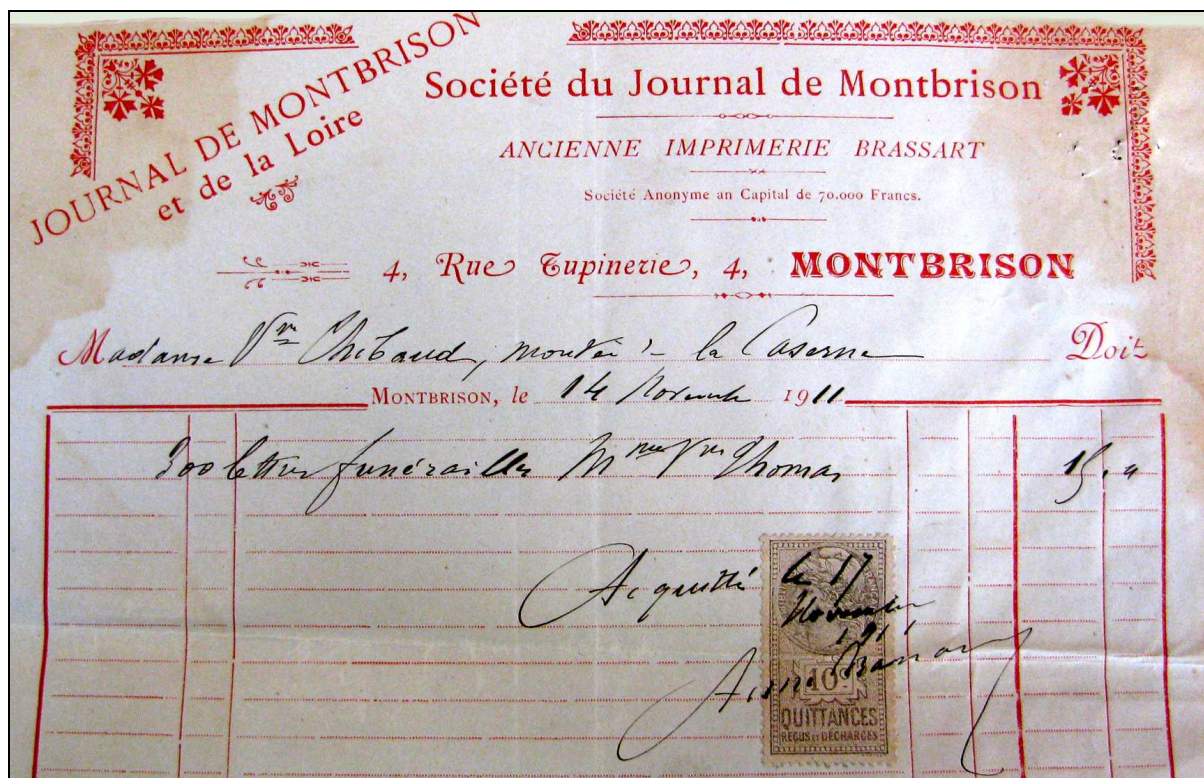 JOURNAL DE MONTBRISON
et de la Loire
Société du Journal de Montbrison
ANCIENNE IMPRIMERIE BRASSART
Société Anonyme au Capital de 70.000 Francs.
4, Rue Tupinerie, 4, MONTBRISON
Madame Vve Chibaud, montée de la Caserne Doit
MONTBRISON, le 14 Novembre 1911
300 lettres funérailles Mme Vve Thomas 15 "
Acquitté le 17
Novembre
1911
10c
QUITTANCES
REÇUS ET DÉCHARGES